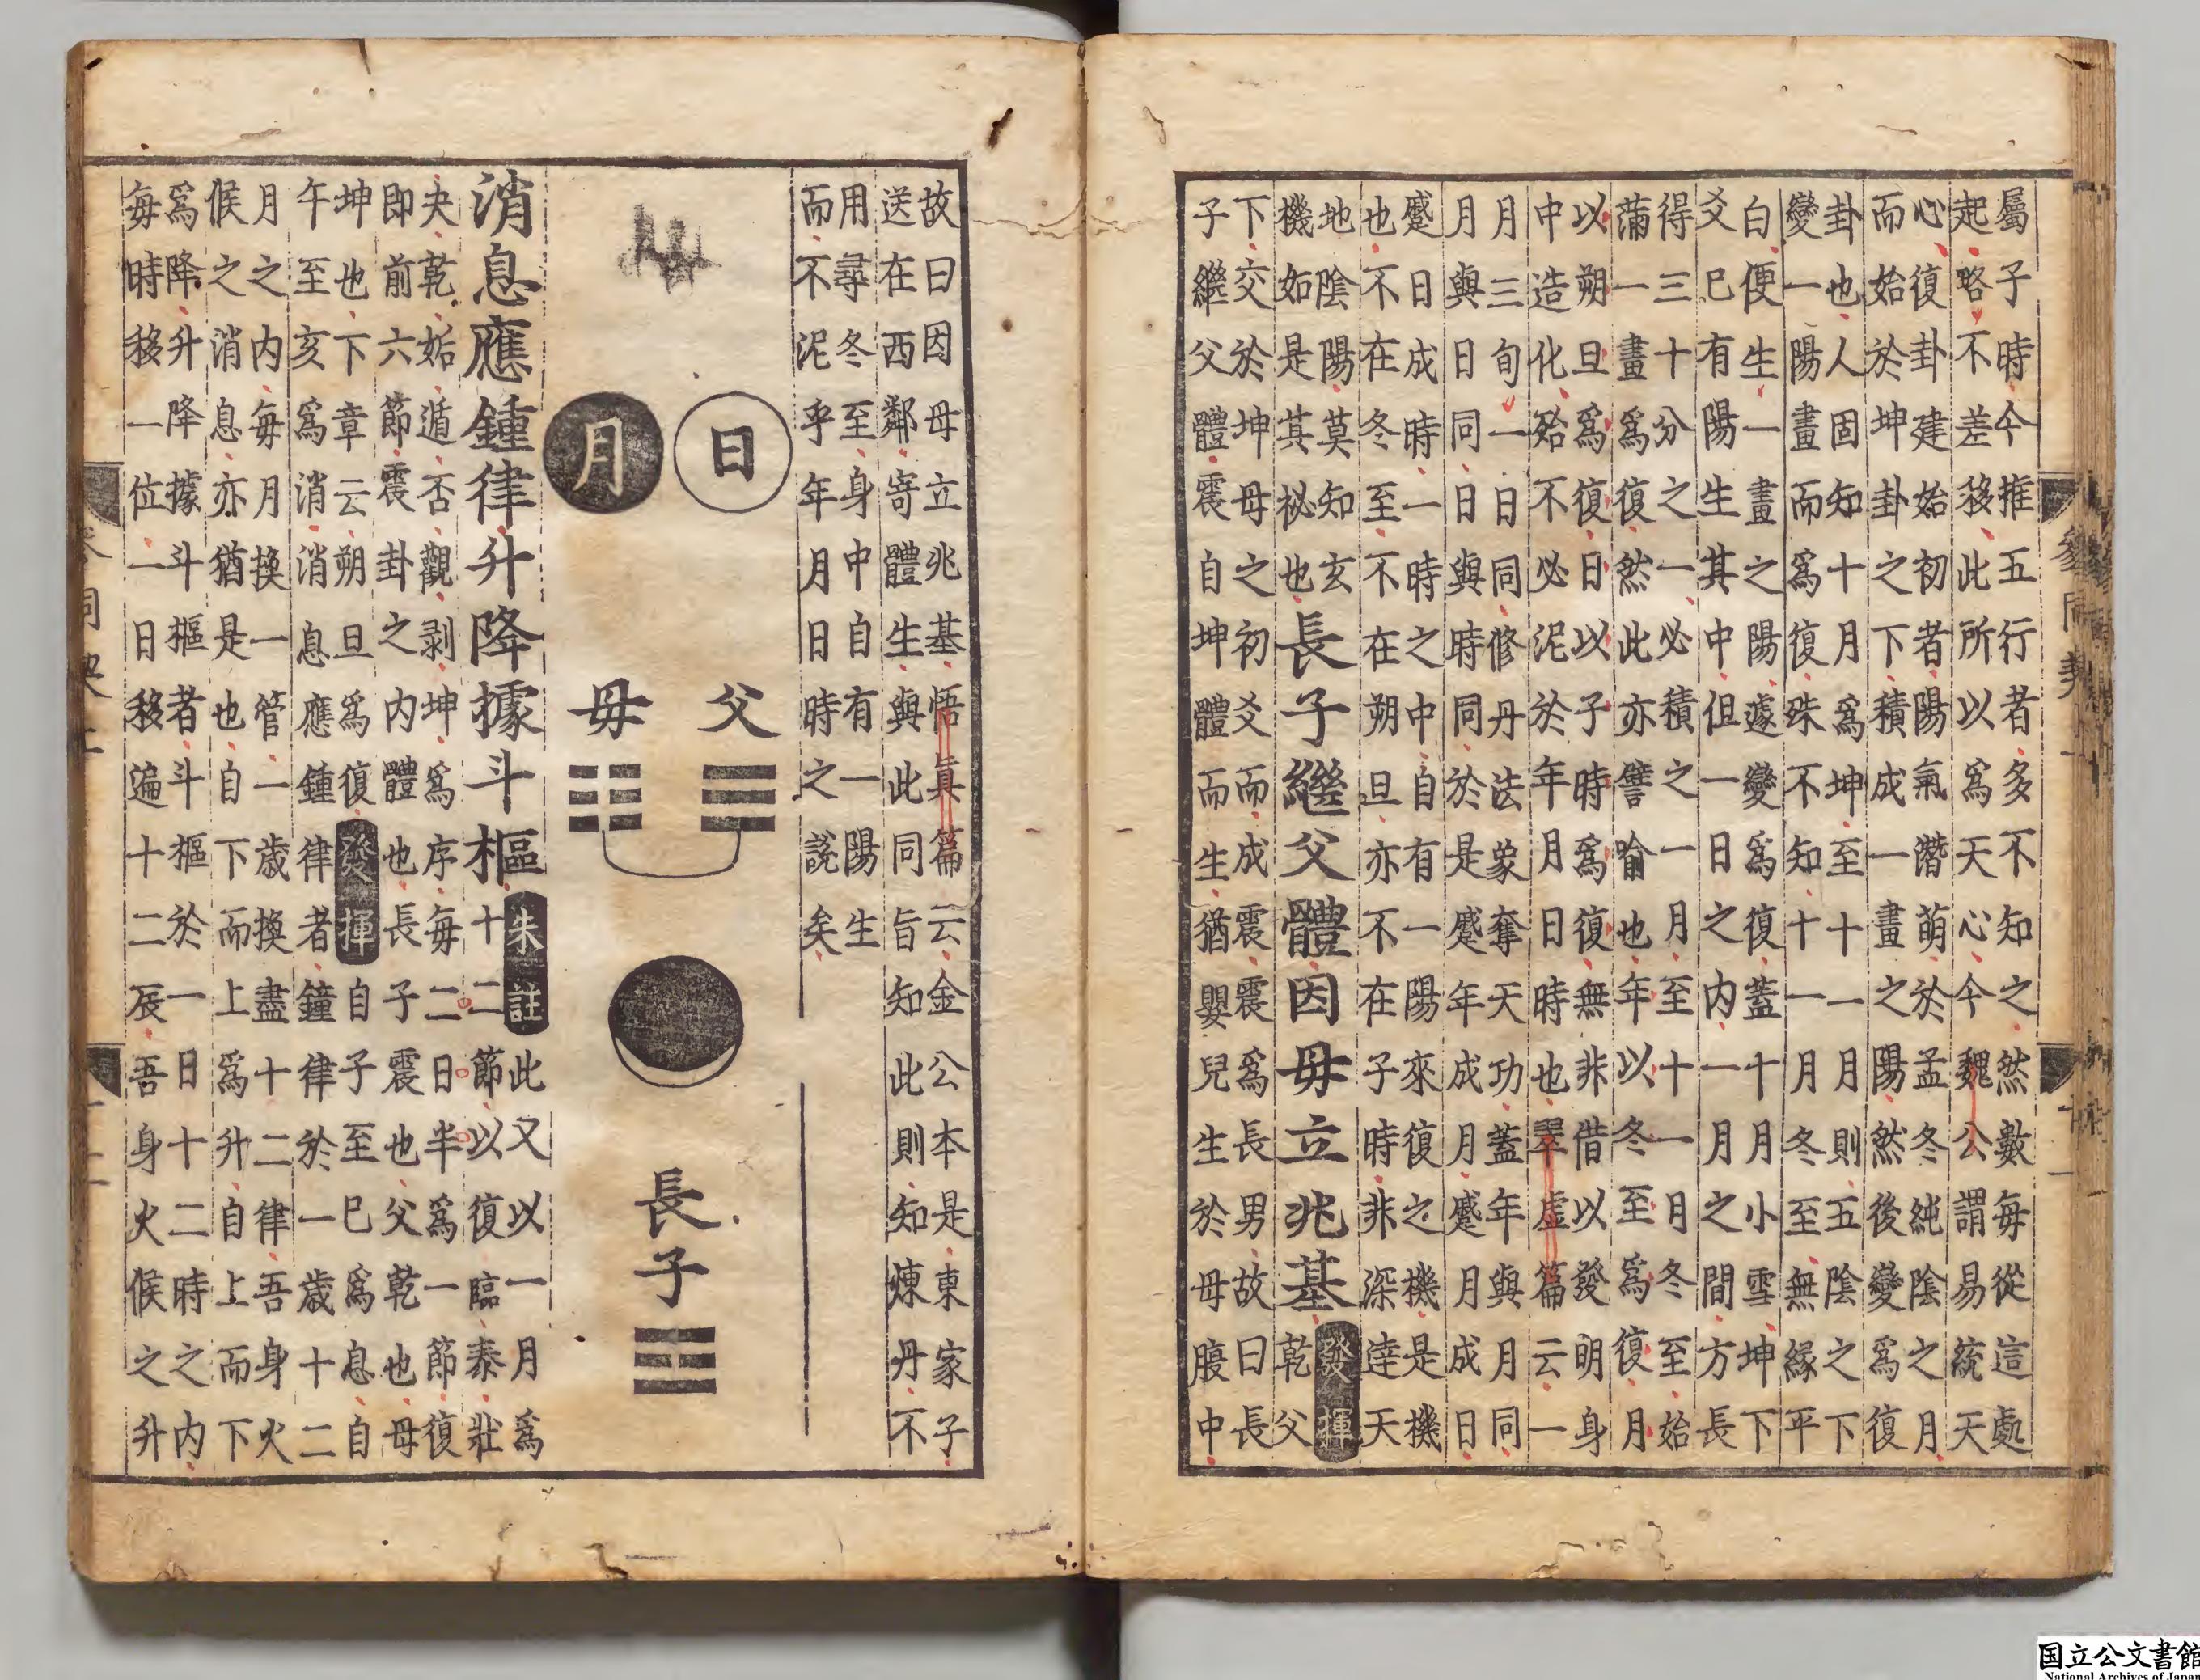 屬子時今推五行者多不知之然數每從這處
起略不差移此所以爲天心今魏公謂易統天
心復卦建始初者陽氣潛萌於孟冬純陰之月
而始於坤卦之下積成一畫之陽然後變爲復
卦也人固知十月爲坤至十一月則五陰之下
變一陽畫而爲復殊不知十一月冬至無緣平
白便生一畫之陽遽變爲復蓋十月小雪坤下
爻巳有陽生其中但一日之内一月之間方長
得三十分之一必積之一月至十一月冬至始
蒲一畫爲復然此亦譬喻也年以冬至爲復月
以朔旦爲復日以子時爲復無非借以發明身
中造化殆不必泥於年月日時也翠虛篇云一
月三旬一日同修丹法象奪天功蓋年與月同
月與日同日與時同於是蹙年成月蹙月成日
蹙日成時一時之中自有一陽來復之機是機
也不在冬至不在朔旦亦不在子時非深達天
地陰陽莫知玄
機如是其祕也
長子繼父體因母立兆基 發揮
乾父
下交於坤母之初爻而成震震爲長男故曰長
子繼父體震自坤體而生猶嬰兒生於母腹中
參同契一
故曰因母立兆基悟眞篇云金公本是東家子
送在西鄰寄體生與此同旨知此則知煉丹不
用尋冬至身中自有一陽生
而不泥乎年月日時之說矣
日
月
父
母
長子
消息應鍾律升降據斗樞 朱註
此又以一月爲
十二節以復臨泰壯
夬乾姤遁否觀剥坤爲序每二日半爲一節復
即前六節震卦之内體也長子震也父乾也母
坤也下章云朔旦爲復 發揮 自子至巳爲息自
午至亥爲消消息應鍾律者鐘律於一歲十二
月之内每月換一管一歲換盡十二律吾身火
候之消息亦猶是也自下而上爲升自上而下
爲降升降據斗樞者斗樞於一日十二時之内
每時移一位一日移遍十二辰吾身火候之升
国立公文書館
National Archives of Japan